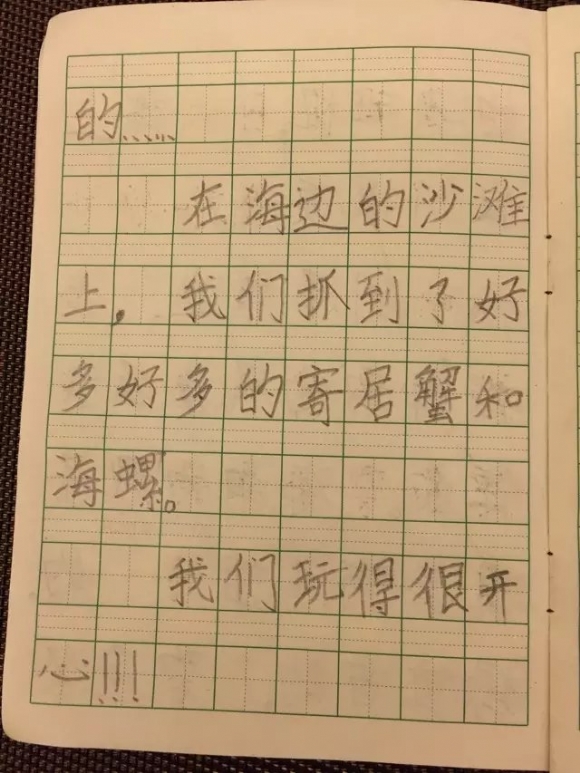 的……
在海边的沙滩
上，我们抓到了好
多好多的寄居蟹和
海螺。
我们玩得很开
心!!!